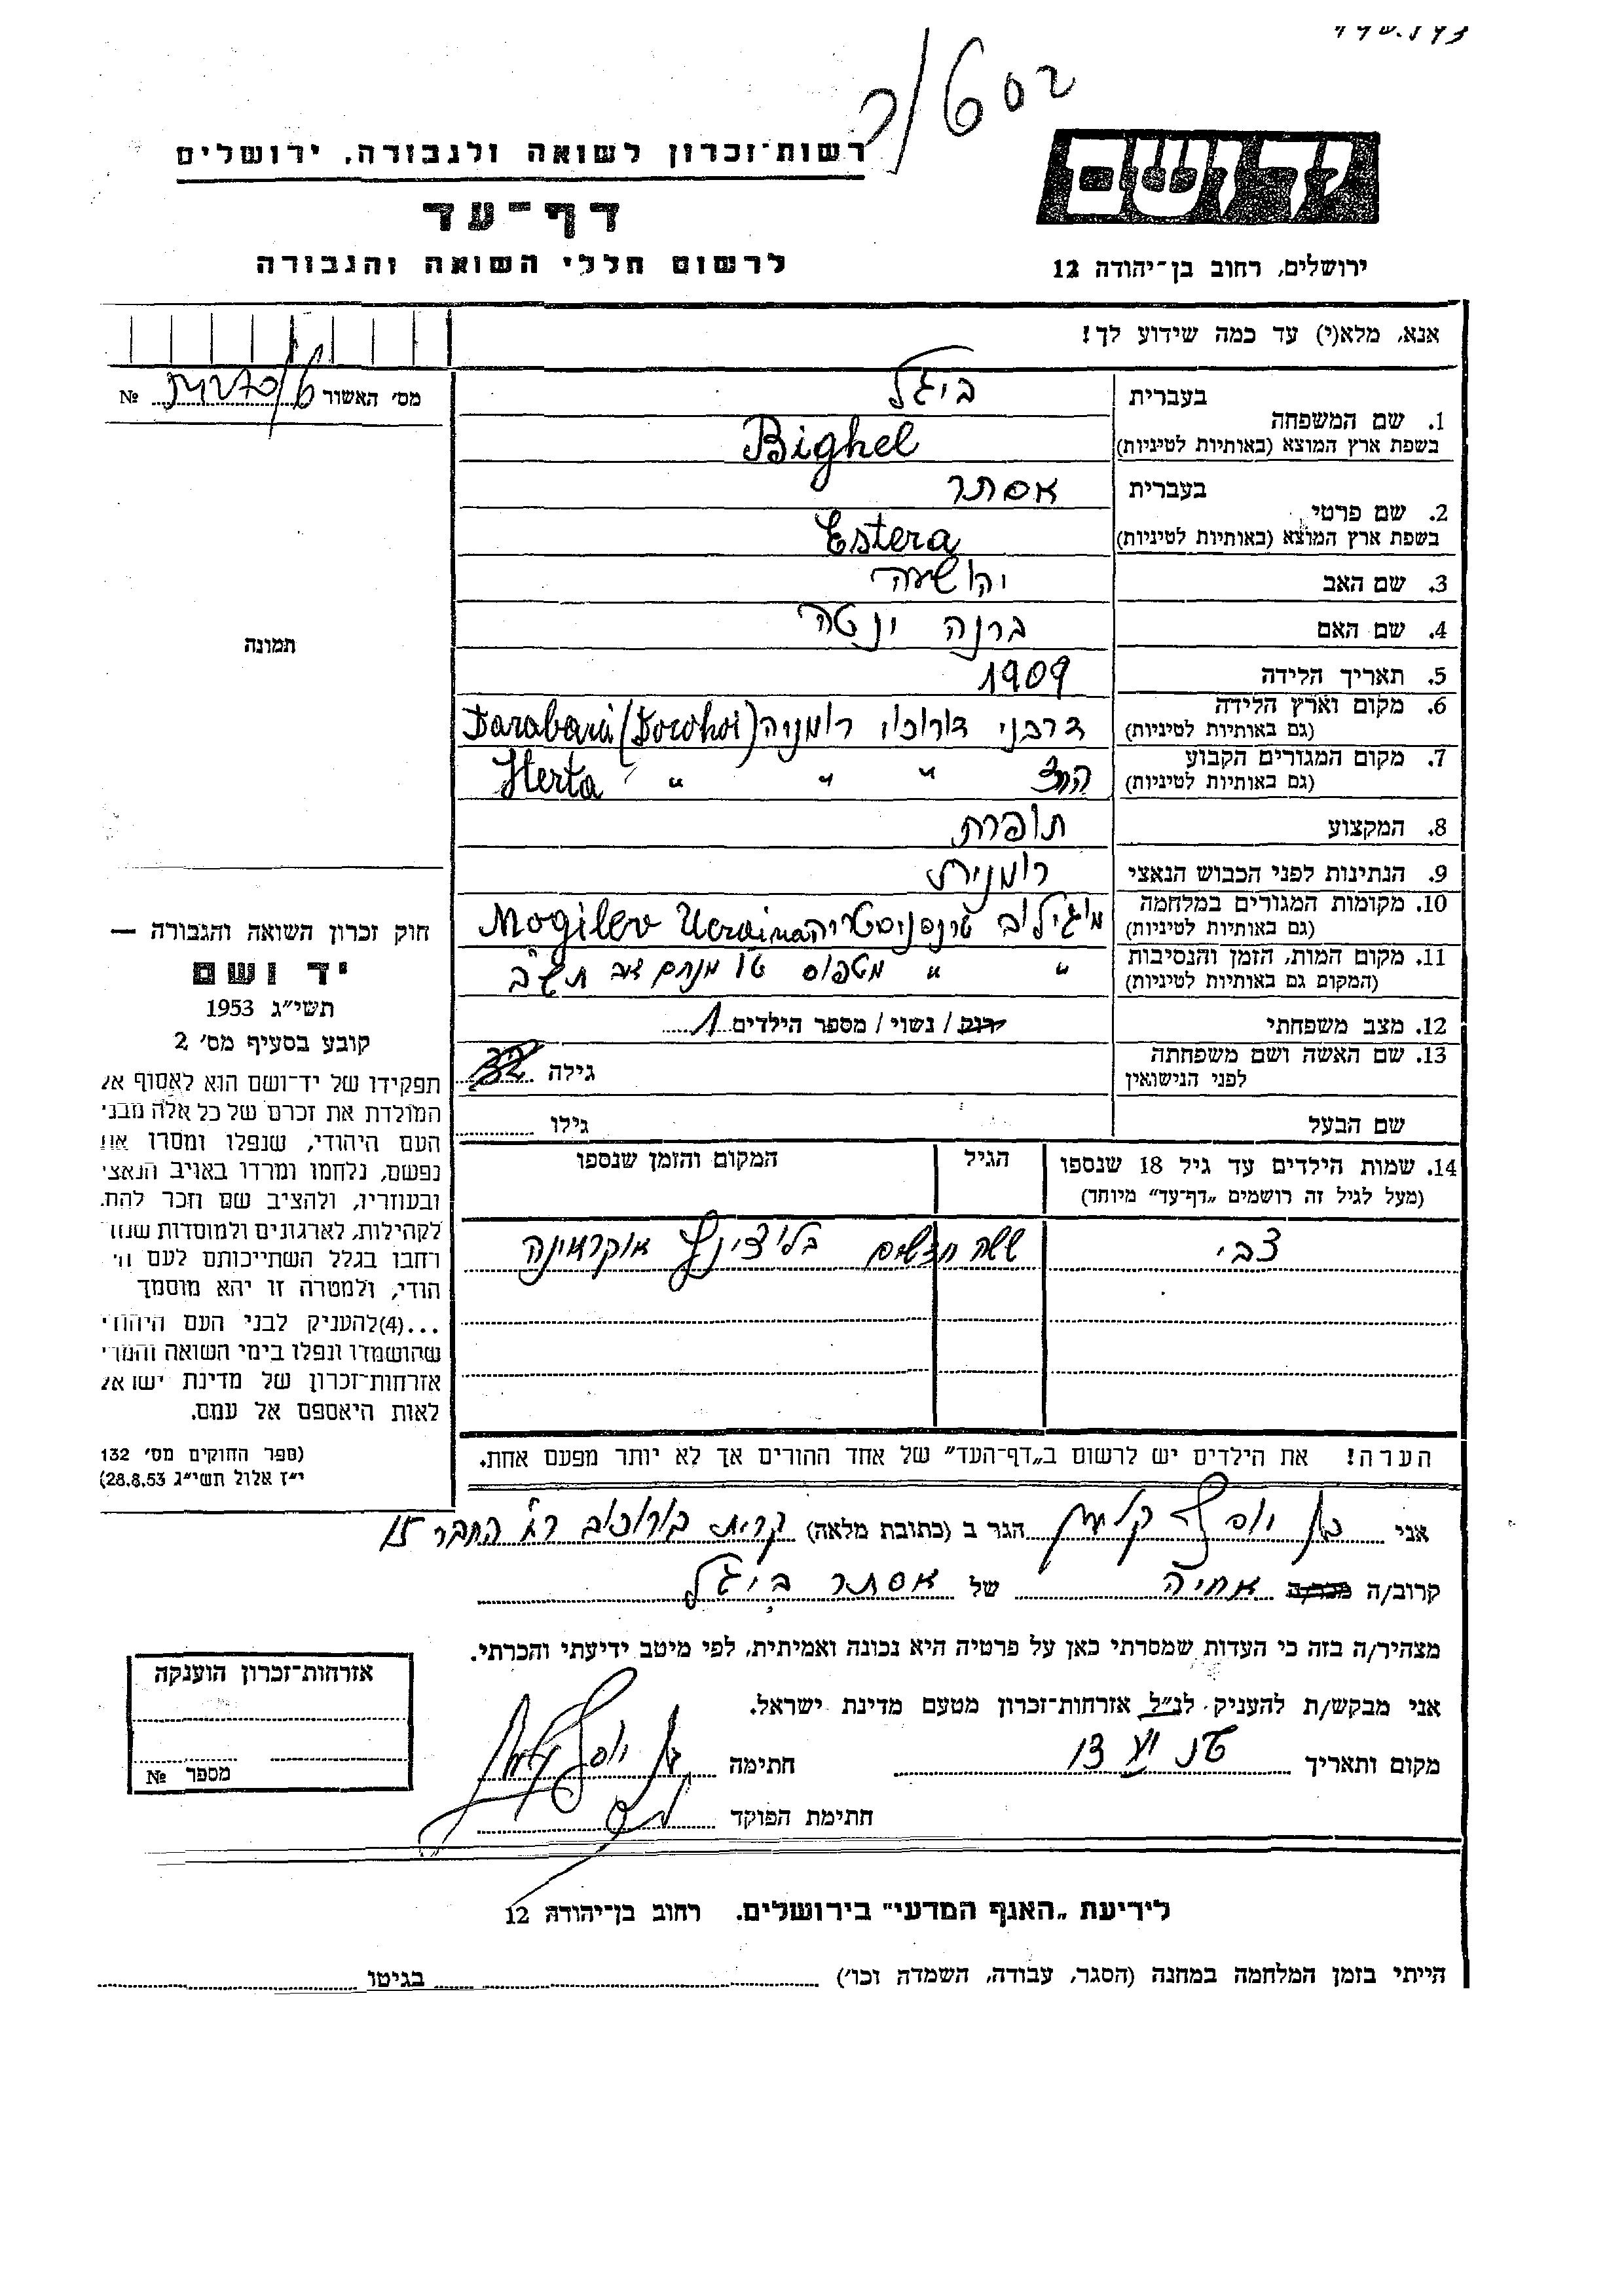 רשות־זכרון לשואה ולגבורה, ירושלים
דף־עד
לרשום חללי השואה והגבורה
יד ושם
ירושלים, רחוב בן־יהודה 12
אנא, מלא(י) עד כמה שידוע לך!
מס׳ האשור №
1. שם המשפחה
בעברית ביגל
בשפת ארץ המוצא (באותיות לטיניות) Bighel
2. שם פרטי
בעברית אסתר
בשפת ארץ המוצא (באותיות לטיניות) Estera
3. שם האב יהושעה
4. שם האם ברנה ינטה
5. תאריך הלידה 1909
6. מקום וארץ הלידה (גם באותיות לטיניות) דרבני דורוכוי רומניה Darabani (Dorohoi)
7. מקום המגורים הקבוע (גם באותיות לטיניות) " " " Herta
8. המקצוע תופרת
9. הנתינות לפני הכבוש הנאצי רומנית
10. מקומות המגורים במלחמה (גם באותיות לטיניות) מוגילוב טרנסניסטריה Mogilev Ucraina
11. מקום המות, הזמן והנסיבות (המקום גם באותיות לטיניות) " " מטפוס טו מנחם אב תש"ב
12. מצב משפחתי רווק / נשוי / מספר הילדים 1
13. שם האשה ושם משפחתה לפני הנישואין גילה
שם הבעל גילו
14. שמות הילדים עד גיל 18 שנספו (מעל לגיל זה רושמים „דף־עד" מיוחד) הגיל המקום והזמן שנספו
צבי ששה חדשים אוקראינה
הערה! את הילדים יש לרשום ב„דף־העד" של אחד ההורים אך לא יותר מפעם אחת.
תמונה
חוק זכרון השואה והגבורה —
יד ושם
תשי״ג 1953
קובע בסעיף מס׳ 2
תפקידו של יד־ושם הוא לאסוף אל
המולדת את זכרם של כל אלה מבני
העם היהודי, שנפלו ומסרו את
נפשם, נלחמו ומרדו באויב הנאצי
ובעוזריו, ולהציב שם וזכר להם,
לקהילות, לארגונים ולמוסדות שנח
רחבו בגלל השתייכותם לעם הי
הודי, ולמטרה זו יהא מוסמך
...(4)להעניק לבני העם היהודי
שהושמדו ונפלו בימי השואה והמרי
אזרחות־זכרון של מדינת ישראל
לאות היאספם אל עמם.
(ספר החוקים מס׳ 132
י״ז אלול תשי״ג 28.8.53)
אני בן יוסף הגר ב (כתובת מלאה) קרית בורוכוב רח החבר 15
קרוב/ה מכר/ה אחיה של אסתר ביגל
מצהיר/ה בזה כי העדות שמסרתי כאן על פרטיה היא נכונה ואמיתית, לפי מיטב ידיעתי והכרתי.
אני מבקש/ת להעניק לנ״ל אזרחות־זכרון מטעם מדינת ישראל.
מקום ותאריך חתימה
חתימת הפוקד
אזרחות־זכרון הוענקה
מספר №
לידיעת „האגף המדעי" בירושלים. רחוב בן־יהודה 12
הייתי בזמן המלחמה במחנה (הסגר, עבודה, השמדה וכו׳) בגיטו